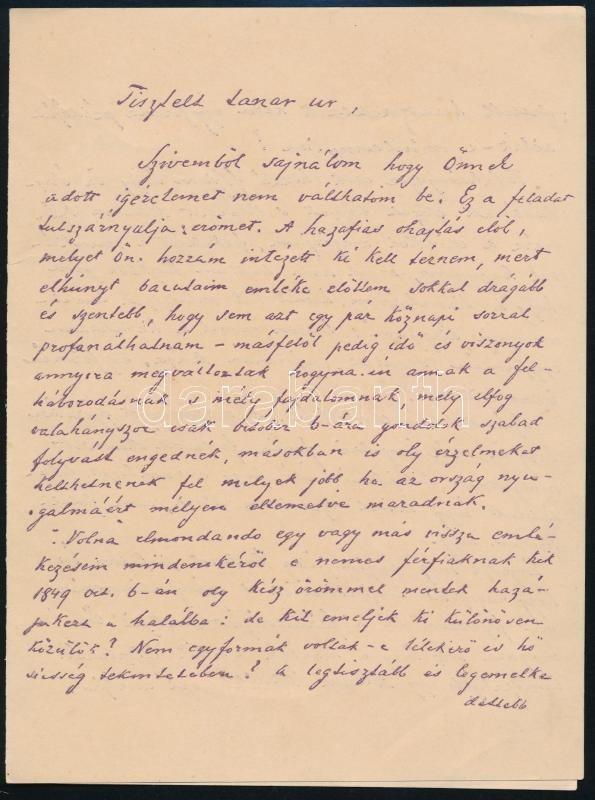 Tisztelt tanár ur,
Szivemből sajnálom hogy Önnek
adott igéretemet nem válthatom be. Ez a feladat
tulszárnyalja erőmet. A hazafias ohajtás elől,
melyet Ön hozzám intézett ki kell térnem, mert
elhunyt bajtársaim emléke előttem sokkal drágább
és szentebb, hogy sem azt egy pár köznapi sorral
profanálhatnám – másfelől pedig idő és viszonyok
annyira megváltoztak hogyha én annak a fel-
háborodásnak s mély fájdalomnak, mely elfog
valahányszor csak október 6-ára gondolok szabad
folyást engednék, másokban is oly érzelmeket
kelthetnének fel melyek jobb ha az ország nyu-
galmáért mélyen eltemetve maradnak.
Volna elmondando egy vagy más vissza emlé-
kezésem mindenikéről e nemes férfiaknak kik
1849 oct. 6-án oly kész örömmel mentek hazá-
jukért a halálba: de kit emeljek ki különösen
közülök? Nem egyformák voltak-e lélekerő is hő
siesség tekintetében? A legtisztább és legemelke
dettebb
darabanth